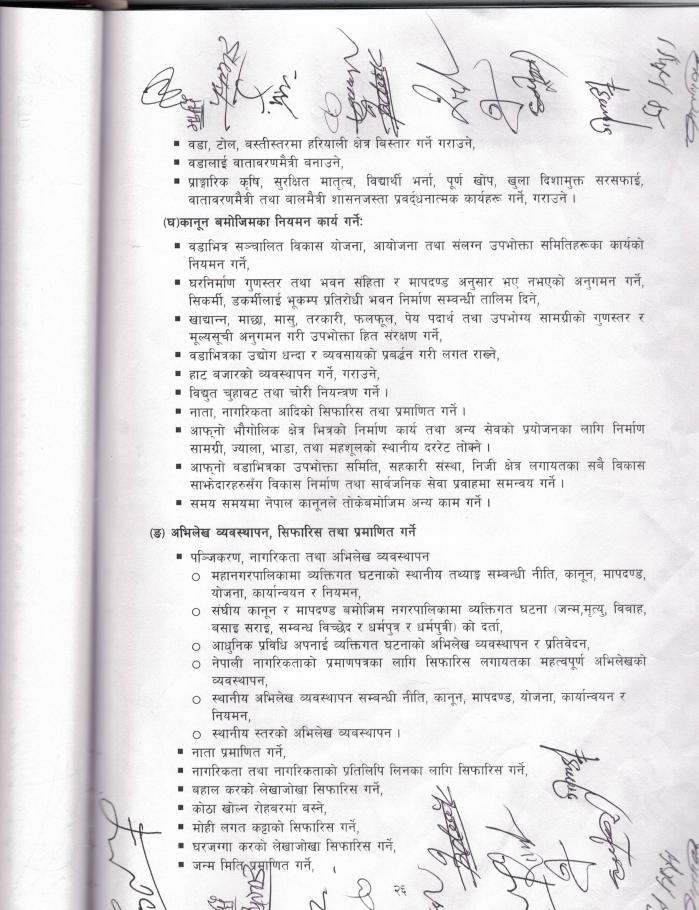 ■ वडा, टोल, बस्तीस्तरमा हरियाली क्षेत्र बिस्तार गर्ने गराउने,
■ वडालाई वातावरणमैत्री बनाउने,
■ प्राङ्गारिक कृषि, सुरक्षित मातृत्व, विद्यार्थी भर्ना, पूर्ण खोप, खुला दिशामुक्त सरसफाई,
वातावरणमैत्री तथा बालमैत्री शासनजस्ता प्रवर्द्धनात्मक कार्यहरू गर्ने, गराउने ।
(घ)कानून बमोजिमका नियमन कार्य गर्नेः
■ वडाभित्र सञ्चालित विकास योजना, आयोजना तथा संलग्न उपभोक्ता समितिहरूका कार्यको
नियमन गर्ने,
■ घरनिर्माण गुणस्तर तथा भवन संहिता र मापदण्ड अनुसार भए नभएको अनुगमन गर्ने,
सिकर्मी, डकर्मीलाई भूकम्प प्रतिरोधी भवन निर्माण सम्बन्धी तालिम दिने,
■ खाद्यान्न, माछा, मासु, तरकारी, फलफूल, पेय पदार्थ तथा उपभोग्य सामग्रीको गुणस्तर र
मूल्यसूची अनुगमन गरी उपभोक्ता हित संरक्षण गर्ने,
■ वडाभित्रका उद्योग धन्दा र व्यवसायको प्रबर्द्धन गरी लगत राख्ने,
■ हाट बजारको व्यवस्थापन गर्ने, गराउने,
■ विद्युत चुहावट तथा चोरी नियन्त्रण गर्ने ।
■ नाता, नागरिकता आदिको सिफारिस तथा प्रमाणित गर्ने ।
■ आफ्नो भौगोलिक क्षेत्र भित्रको निर्माण कार्य तथा अन्य सेवको प्रयोजनका लागि निर्माण
सामग्री, ज्याला, भाडा, तथा महशूलको स्थानीय दररेट तोक्ने ।
■ आफ्नो वडाभित्रका उपभोक्ता समिति, सहकारी संस्था, निजी क्षेत्र लगायतका सबै विकास
साझेदारहरुसँग विकास निर्माण तथा सार्वजनिक सेवा प्रवाहमा समन्वय गर्ने ।
■ समय समयमा नेपाल कानूनले तोकेबमोजिम अन्य काम गर्ने ।
(ङ) अभिलेख व्यवस्थापन, सिफारिस तथा प्रमाणित गर्ने
■ पञ्जिकरण, नागरिकता तथा अभिलेख व्यवस्थापन
○ महानगरपालिकामा व्यक्तिगत घटनाको स्थानीय तथ्याङ्क सम्बन्धी नीति, कानून, मापदण्ड,
योजना, कार्यान्वयन र नियमन,
○ संघीय कानून र मापदण्ड बमोजिम नगरपालिकामा व्यक्तिगत घटना (जन्म,मृत्यु, विवाह,
बसाइ सराइ, सम्बन्ध विच्छेद र धर्मपुत्र र धर्मपुत्री) को दर्ता,
○ आधुनिक प्रविधि अपनाई व्यक्तिगत घटनाको अभिलेख व्यवस्थापन र प्रतिवेदन,
○ नेपाली नागरिकताको प्रमाणपत्रका लागि सिफारिस लगायतका महत्वपूर्ण अभिलेखको
व्यवस्थापन,
○ स्थानीय अभिलेख व्यवस्थापन सम्बन्धी नीति, कानून, मापदण्ड, योजना, कार्यान्वयन र
नियमन,
○ स्थानीय स्तरको अभिलेख व्यबस्थापन ।
■ नाता प्रमाणित गर्ने,
■ नागरिकता तथा नागरिकताको प्रतिलिपि लिनका लागि सिफारिस गर्ने,
■ बहाल करको लेखाजोखा सिफारिस गर्ने,
■ कोठा खोल्न रोहबरमा बस्ने,
■ मोही लगत कट्टाको सिफारिस गर्ने,
■ घरजग्गा करको लेखाजोखा सिफारिस गर्ने,
■ जन्म मिति प्रमाणित गर्ने,
२६